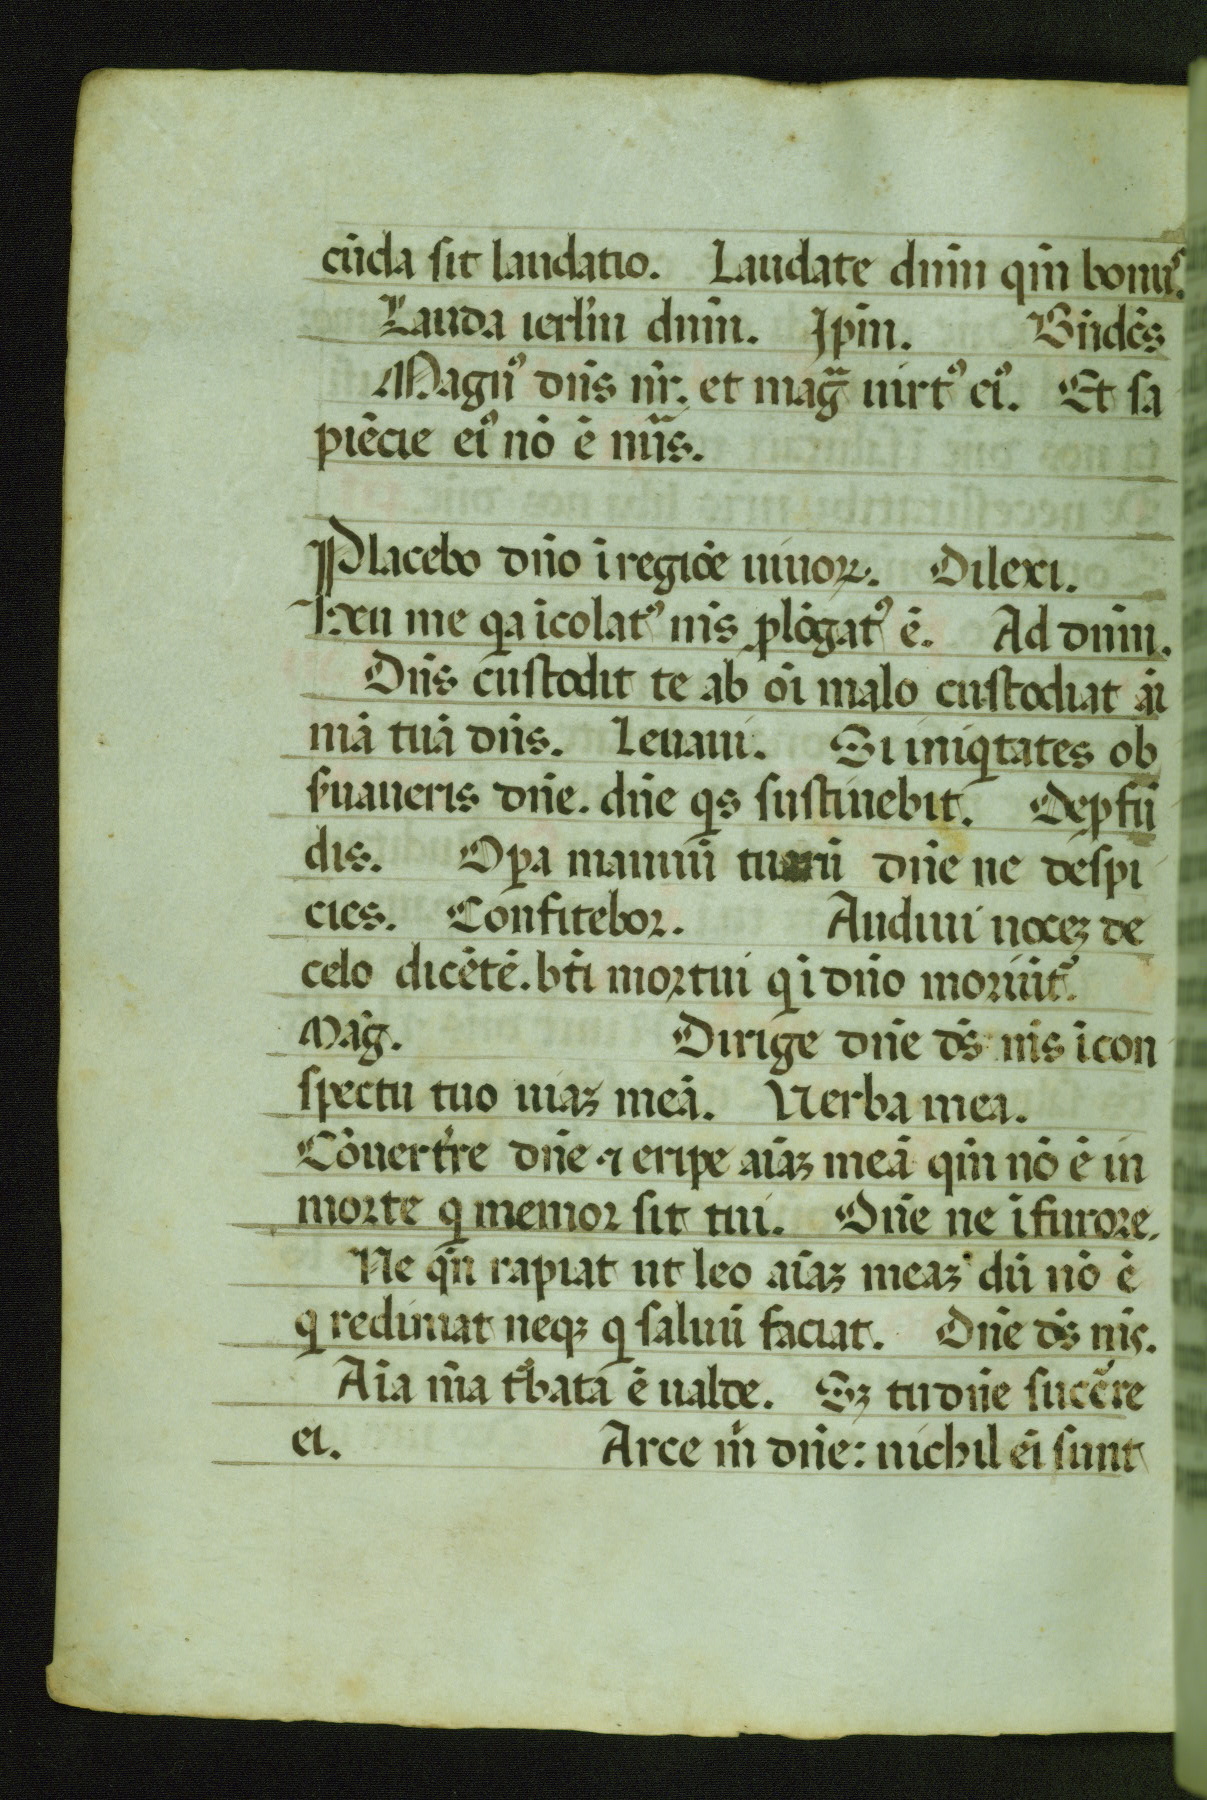 cūda sit laudatio. Laudate dnm̄ qm̄ bonus᾿.
Lauda ierlm̄ dnm̄. Ipm̄. Bn̄dc̄s
Magn᾿ dn̄s nr̄. et maḡ uirt᾿ ei᾿. Et sa
piēcie ei᾿ nō ē nūs.
Placebo dn̄o ī regiōe uiuoꝝ. Dilexi.
Heu me qa īcolat᾿ mis ꝓlōgat᾿ ē. Ad dnm̄.
Dn̄s custodit te ab oī malo custodiat āi
mā tuā dn̄s. Leuaui. Si iniqtates ob
ẜuaueris dn̄e. dn̄e qs sustinebit. De ꝓfū
dis. Oꝑa manuū tuaꝝū dn̄e ne despi
cies. Confitebor. Audiui uoceꝫ de
celo dicētē. bt̄i mortui q ī dn̄o moriūt᾿.
Māg. Dirige dn̄e ds̄ ms̄ ī con
spectu tuo uiaꝫ meā. Uerba mea.
Cōuertr̄e dn̄e ⁊ eripe aīaꝫ meā qm̄ nō ē in
morte q memor sit tui. Dn̄e ne ī furore.
Ne qn̄ rapiat ut leo aīaꝫ meaꝫ dū nō ē
q redimat neqꝫ q saluū faciat. Dn̄e ds̄ ms̄.
Aīa m̄a tᵇbata ē ualde. Sꝫ tu dn̄e sucēre
ei. Parce m̄ dn̄e: nichil ēi sunt